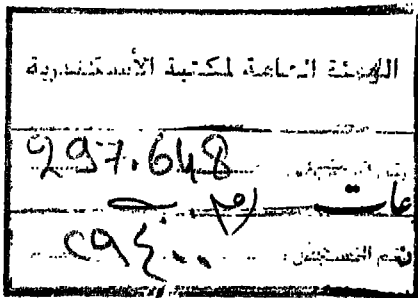 الهيئة العامة لمكتبة الأسكندرية
رقم التصنيف: 297.648
عات م
رقم التسجيل: ٢٩٤٠٠